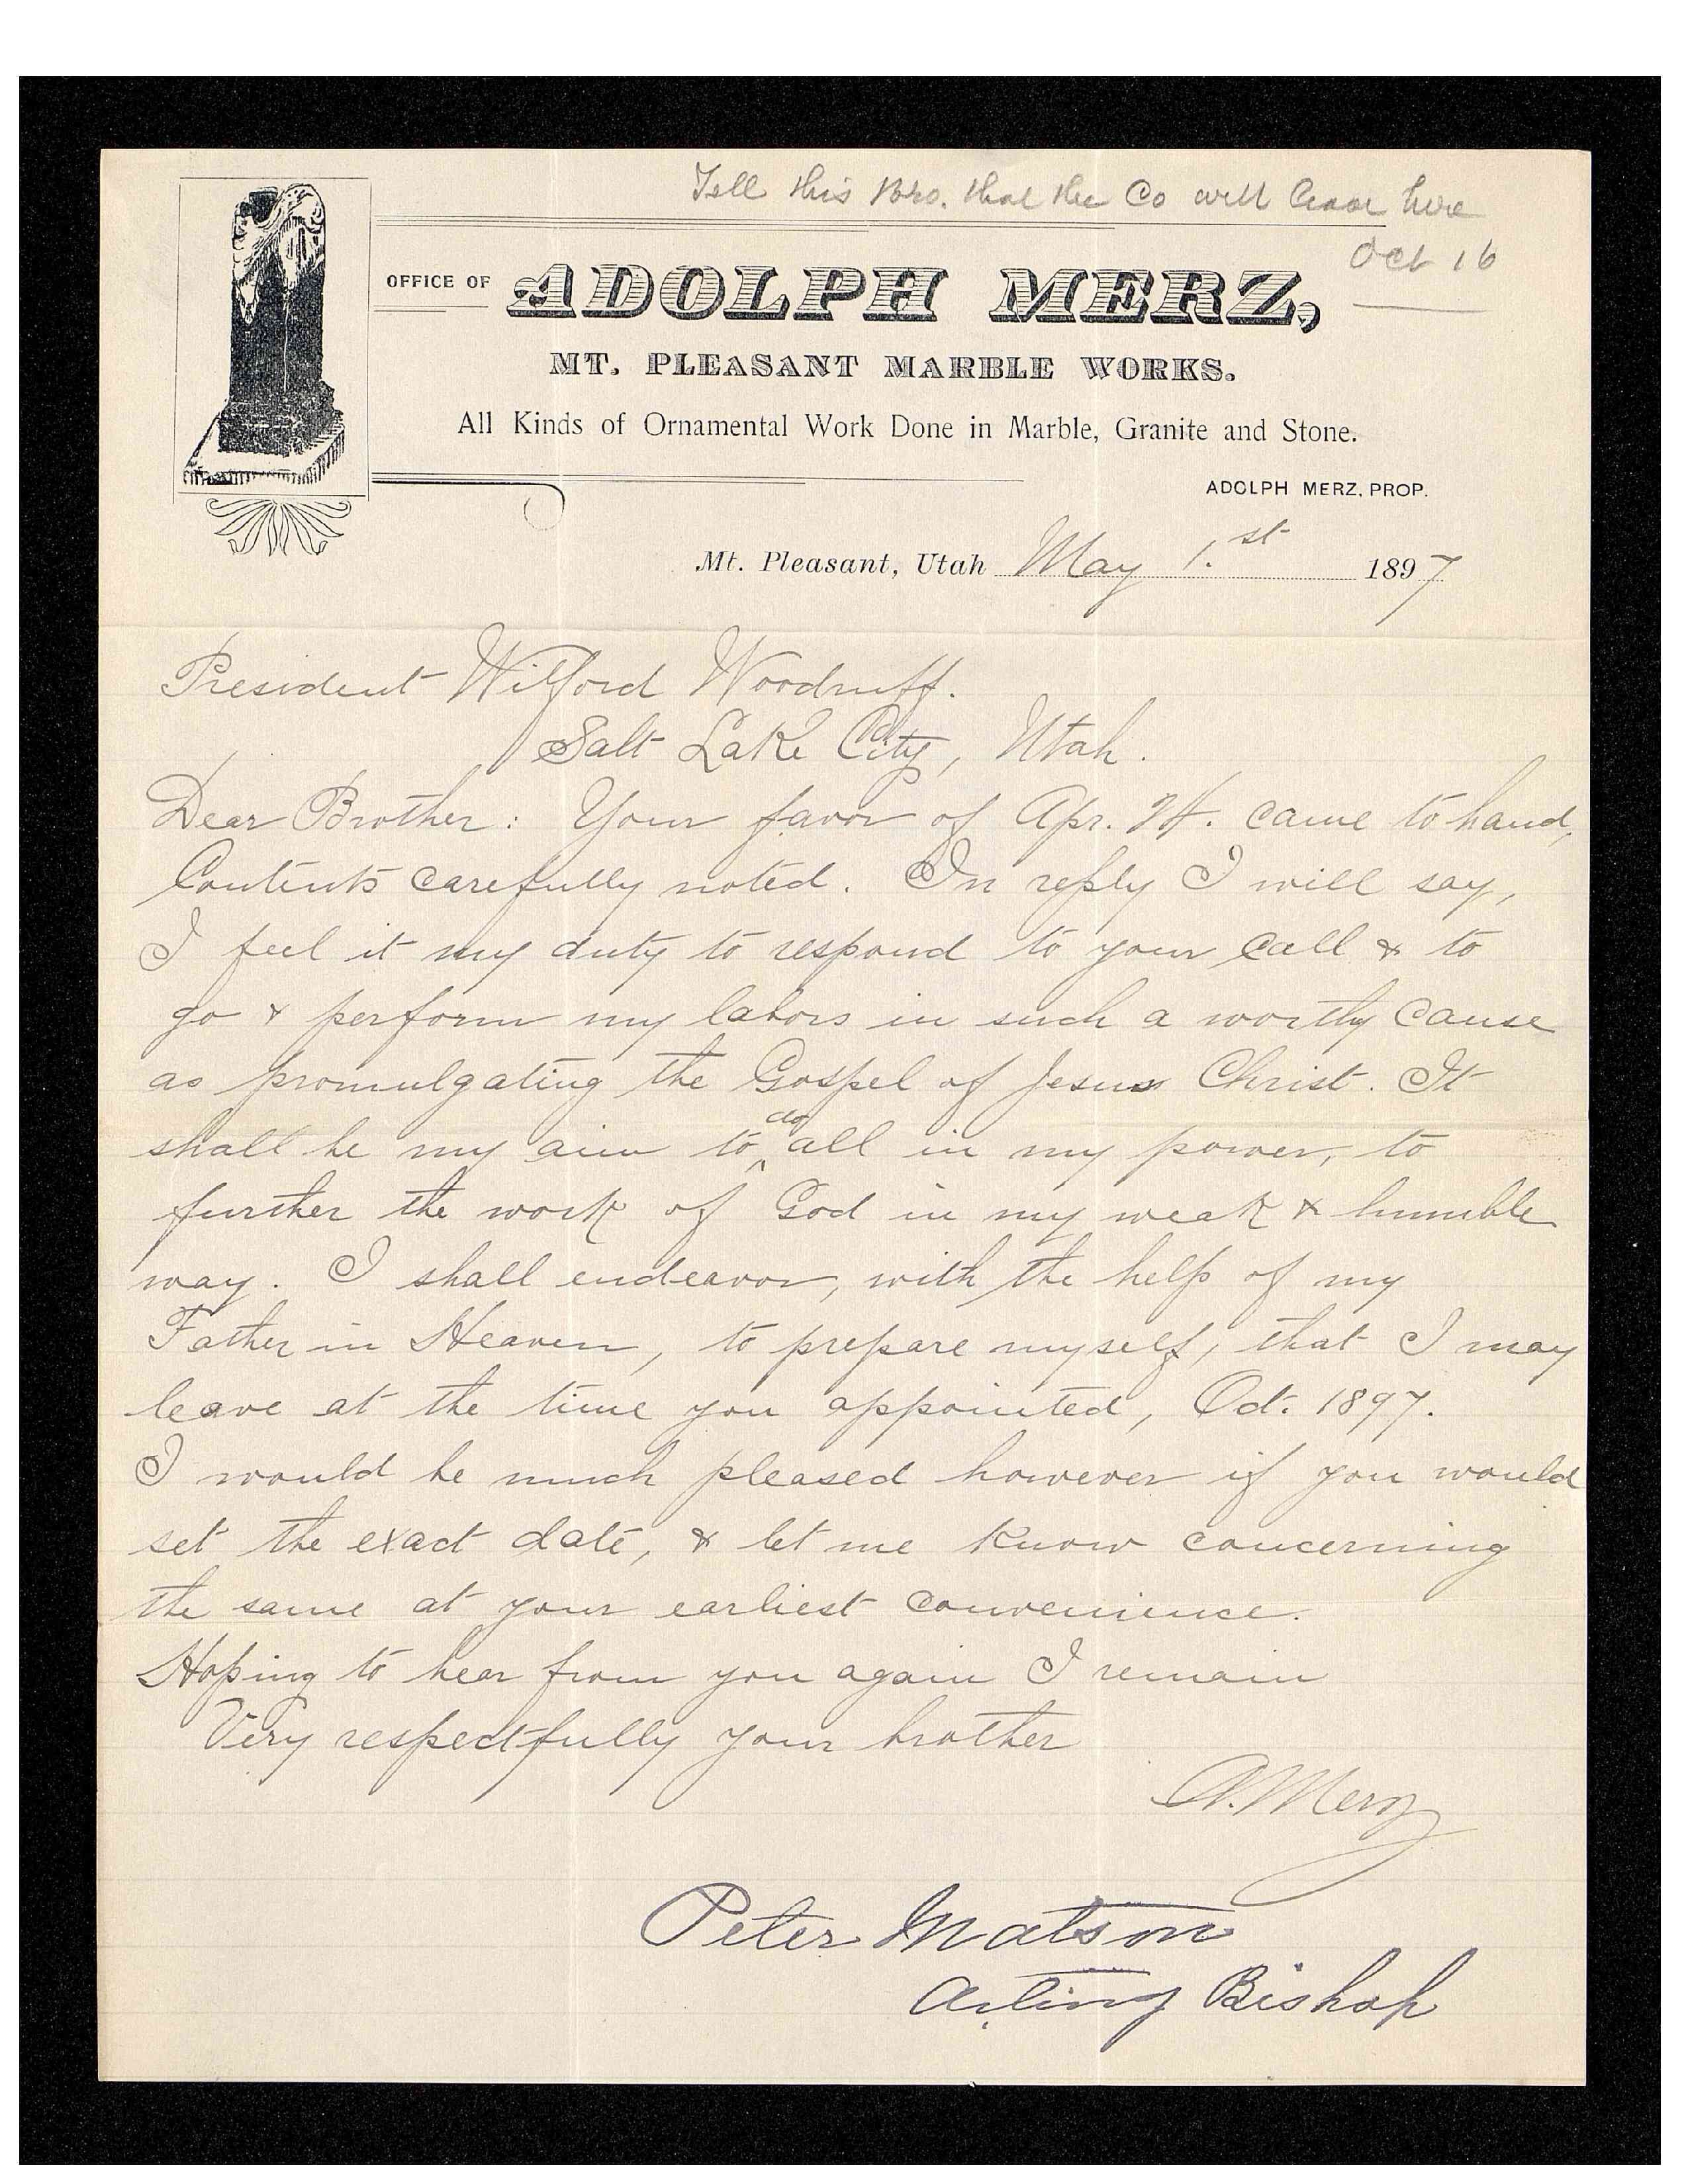 Tell this Bro. that the Co will leave here
Oct 16
OFFICE OF ADOLPH MERZ,
MT. PLEASANT MARBLE WORKS.
All Kinds of Ornamental Work Done in Marble, Granite and Stone.
ADOLPH MERZ, PROP.
Mt. Pleasant, Utah May 1.st 1897
President Wilford Woodruff.
Salt Lake City, Utah.
Dear Brother: Your favor of Apr. 24. came to hand,
Contents carefully noted. In reply I will say,
I feel it my duty to respond to your call & to
go & perform my labors in such a worthy cause
as promulgating the Gospel of Jesus Christ. It
shall be my aim to ^do all in my power, to
further the work of God in my weak & humble
way. I shall endeavor, with the help of my
Father in Heaven, to prepare myself, that I may
leave at the time you appointed, Oct. 1897.
I would be much pleased however if you would
set the exact date, & let me know concerning
the same at your earliest convenience.
Hoping to hear from you again I remain
Very respectfully your brother
A. Merz
Peter Matson
Acting Bishop